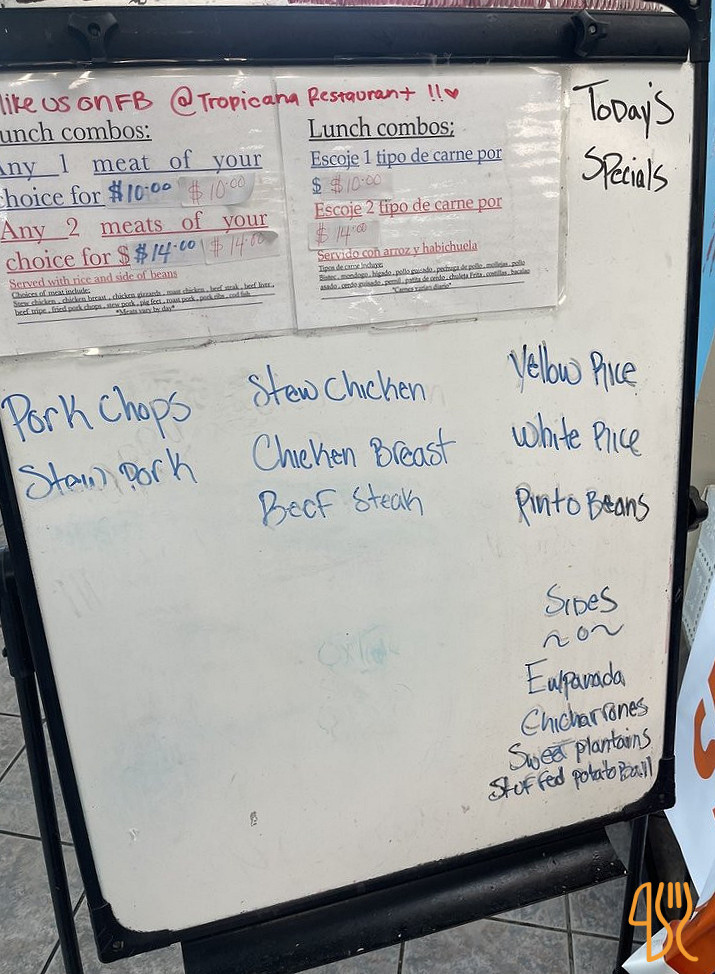 like us on FB @Tropicana Restaurant !!♥
unch combos:
Any 1 meat of your
choice for $10.00 $10.00
Any 2 meats of your
choice for $ $14.00 $14.00
Served with rice and side of beans
Choices of meat include:
Stew chicken , chicken breast , chicken gizzards , roast chicken , beef steak , beef liver ,
beef tripe , fried pork chops , stew pork , pig feet , roast pork , pork ribs , cod fish
*Meats vary by day*
Lunch combos:
Escoje 1 tipo de carne por
$ $10.00
Escoje 2 tipo de carne por
$14.00
Servido con arroz y habichuela
Tipos de carne incluye:
Bistec , mondogo , higado , pollo guisado , pechuga de pollo , mollejas , pollo
asado , cerdo guisado , pernil , patita de cerdo , chuleta Frita , costillas , bacalao
*Carnes varian diario*
Today's
Specials
Pork Chops
Stew Pork
Stew Chicken
Chicken Breast
Beef Steak
Yellow Rice
White Rice
Pinto Beans
Sides
~o~
Empanada
Chicharrones
Sweet plantains
Stuffed potato Ball